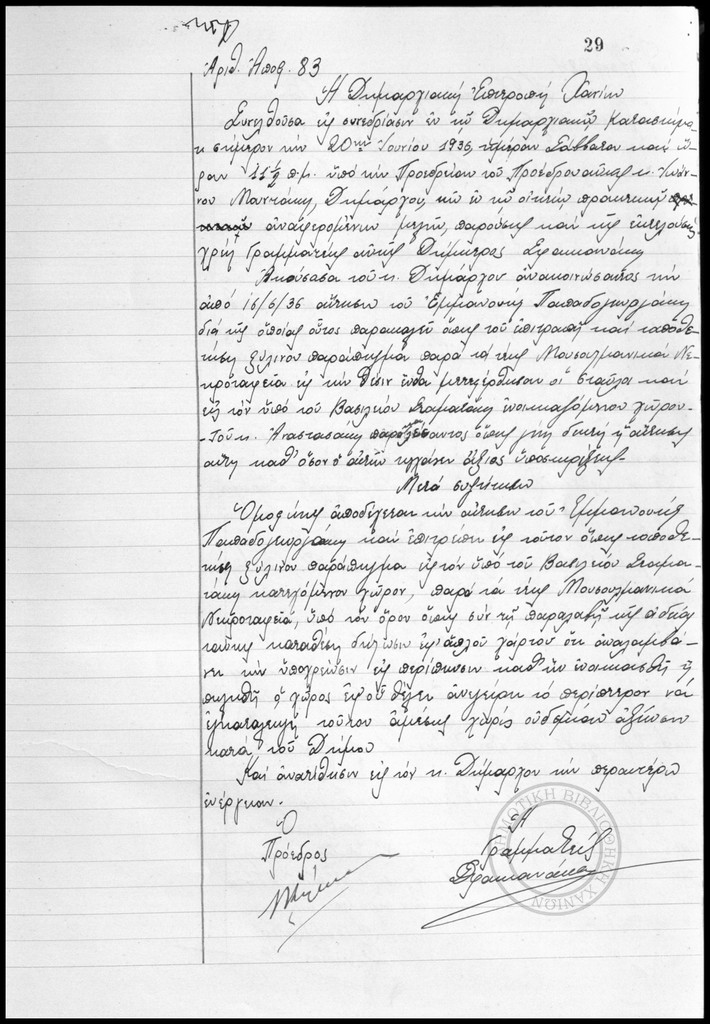 29
Ἀριθ. Ἀποφ. 83
Ἡ Δημαρχιακή Ἐπιτροπή Χανίων
Συνελθοῦσα εἰς συνεδρίασιν ἐν τῷ Δημαρχιακῷ Καταστήμα-
τι σήμερον τήν 20ην Ἰουνίου 1936, ἡμέραν Σάββατον καί ὥ-
ραν 11 ½ π.μ. ὑπό τήν Προεδρείαν τοῦ Προέδρου αὐτῆς κ. Ἰωάν-
νου Μουντάκη, Δημάρχου, τῶν ἐν τῷ οἰκείῳ πρακτικῷ
ἀναφερομένων μελῶν, παρούσης καί τῆς ἐκτελούσης
χρέη Γραμματέως αὐτῆς Δήμητρας Σφακιανάκη
Ἀκούσασα τοῦ κ. Δημάρχου ἀνακοινώσαντος τήν
ἀπό 16/6/36 αἴτησιν τοῦ Ἐμμανουήλ Παπαδογεωργάκη
διά τῆς ὁποίας οὗτος παρακαλεῖ ὅπως τοῦ ἐπιτραπῇ καί τοποθε-
τήσῃ ξύλινον παράπηγμα παρά τά τέως Μουσουλμανικά Νε-
κροταφεία εἰς τήν θέσιν ἔνθα μετεφέρθησαν οἱ σταῦλοι καί
εἰς τόν ὑπό τοῦ Βασιλείου Σταματάκη ἐνοικιαζόμενον χῶρον
Τοῦ κ. Αναστασάκη ὅπως γίνῃ δεκτή ἡ αἴτησις
αὕτη καθ' ὅσον ὁ αἰτῶν τυγχάνει ἄξιος ὑποστηρίξεως
Μετά συζήτησιν
Ὁμοφώνως ἀποδέχεται τήν αἴτησιν τοῦ Ἐμμανουήλ
Παπαδογεωργάκη καί ἐπιτρέπει εἰς τοῦτον ὅπως τοποθε-
τήσῃ ξύλινον παράπηγμα εἰς τόν ὑπό τοῦ Βασιλείου Σταμα-
τάκη κατεχόμενον χῶρον, παρά τά τέως Μουσουλμανικά
Νεκροταφεία, ὑπό τόν ὅρον ὅπως σύν τῇ παραλαβῇ τῆς ἀδείας
ταύτης καταθέσῃ δήλωσιν ἐφ' ἁπλοῦ χάρτου ὅτι ἀναλαμβά-
νει τήν ὑποχρέωσιν εἰς περίπτωσιν καθ' ἥν ἐνοικιασθῇ ἤ
πωληθῇ ὁ χῶρος ἐφ' οὗ θέλει ἀνεγείρει τό περίπτερον νά
ἐγκαταλείψῃ τοῦτον ἀμέσως χωρίς οὐδεμίαν ἀξίωσιν
κατά τοῦ Δήμου
Καί ἀνατίθησιν εἰς τόν κ. Δήμαρχον τήν περαιτέρω
ἐνέργειαν.
Ὁ
Πρόεδρος
Ἡ
Γραμματεύς
Σφακιανάκη
ΔΗΜΟΤΙΚΗ ΒΙΒΛΙΟΘΗΚΗ ΧΑΝΙΩΝ